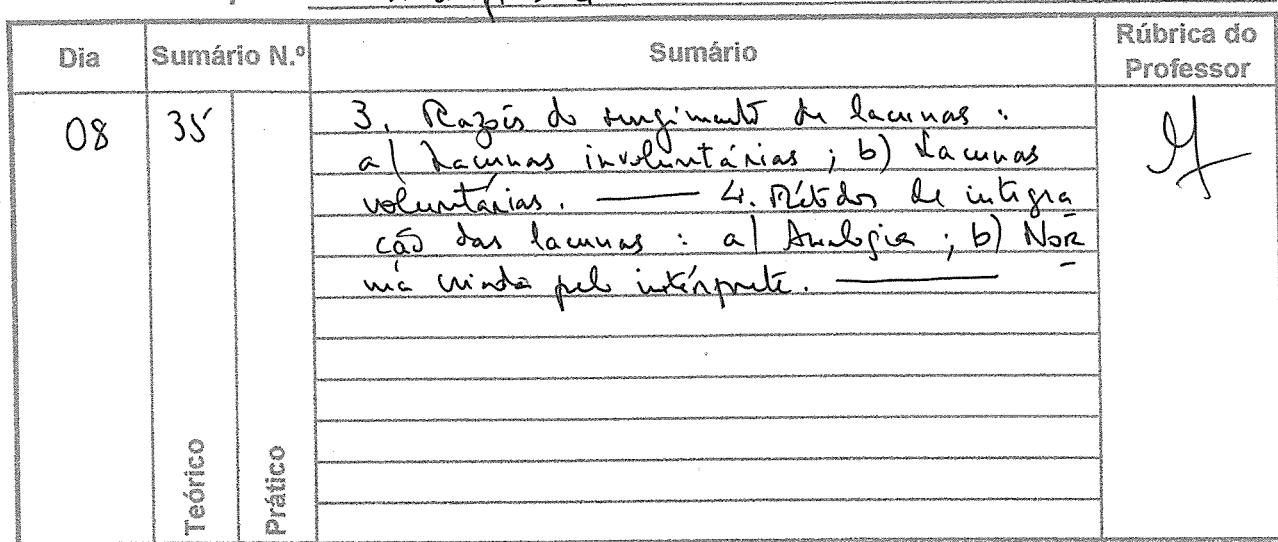 Dia
Sumário N.º
Sumário
Rúbrica do
Professor
08
35
3. Razões do surgimento de lacunas :
a) Lacunas involuntárias ; b) Lacunas
voluntárias. —— 4. Métodos de integra
ção das lacunas : a) Analogia ; b) Nor
ma criada pelo intérprete. ——
Teórico
Prático